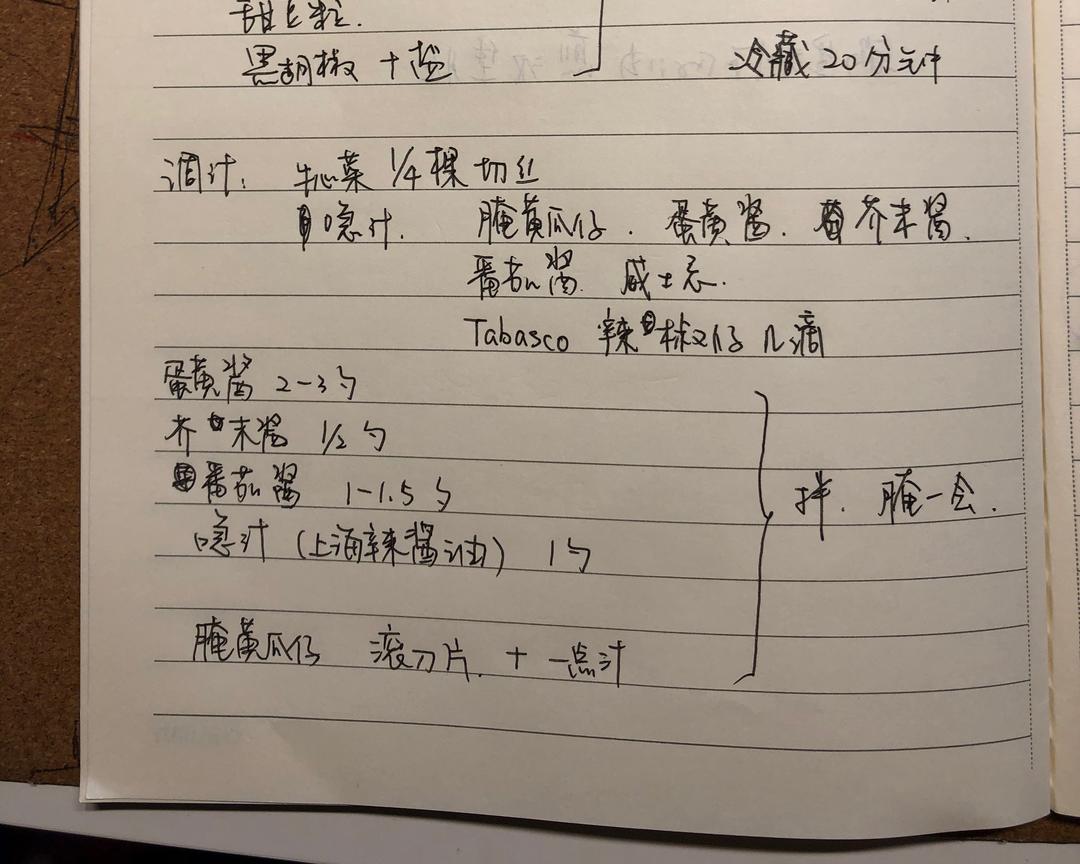 黑胡椒 +盐
冷藏 20分钟
调汁: 牠菜 1/4棵 切丝
喼汁. 腌黄瓜仔. 蛋黄酱. 芥末酱.
番茄酱. 威士忌.
Tabasco 辣椒仔 几滴
蛋黄酱 2-3勺
芥末酱 1/2勺
番茄酱 1-1.5勺
喼汁 (上海辣酱油) 1勺
拌. 腌一会.
腌黄瓜仔 滚刀片. + 一点汁